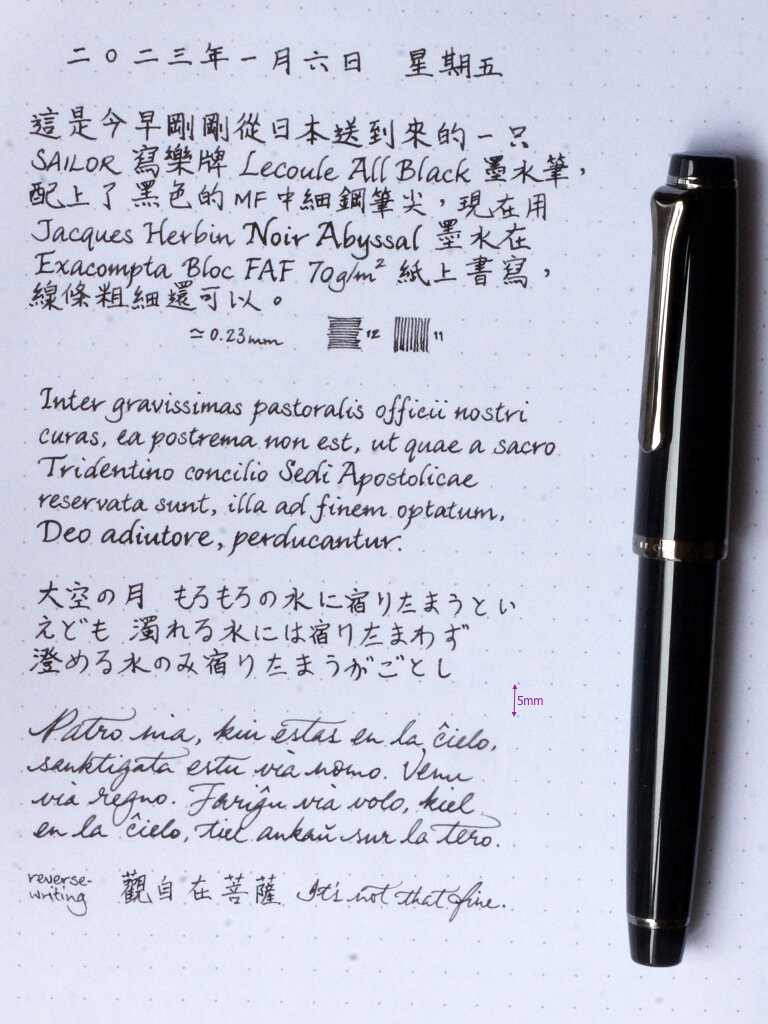 二〇二三年一月六日　星期五
這是今早剛剛從日本送到來的一只
SAILOR 寫樂牌 Lecoule All Black 墨水筆，
配上了黑色的 MF 中細鋼筆尖，現在用
Jacques Herbin Noir Abyssal 墨水在
Exacompta Bloc FAF 70g/m² 紙上書寫，
線條粗細還可以。
≃0.23mm 12 11
Inter gravissimas pastoralis officii nostri
curas, ea postrema non est, ut quae a sacro
Tridentino concilio Sedi Apostolicae
reservata sunt, illa ad finem optatum,
Deo adiutore, perducantur.
大空の月　もろもろの水に宿りたまうとい
えども　濁れる水には宿りたまわず
澄める水のみ宿りたまうがごとし
5mm
Patro nia, kiu estas en la ĉielo,
sanktigata estu via nomo. Venu
via regno. Fariĝu via volo, kiel
en la ĉielo, tiel ankaŭ sur la tero.
reverse-
writing 觀自在菩薩 It's not that fine.